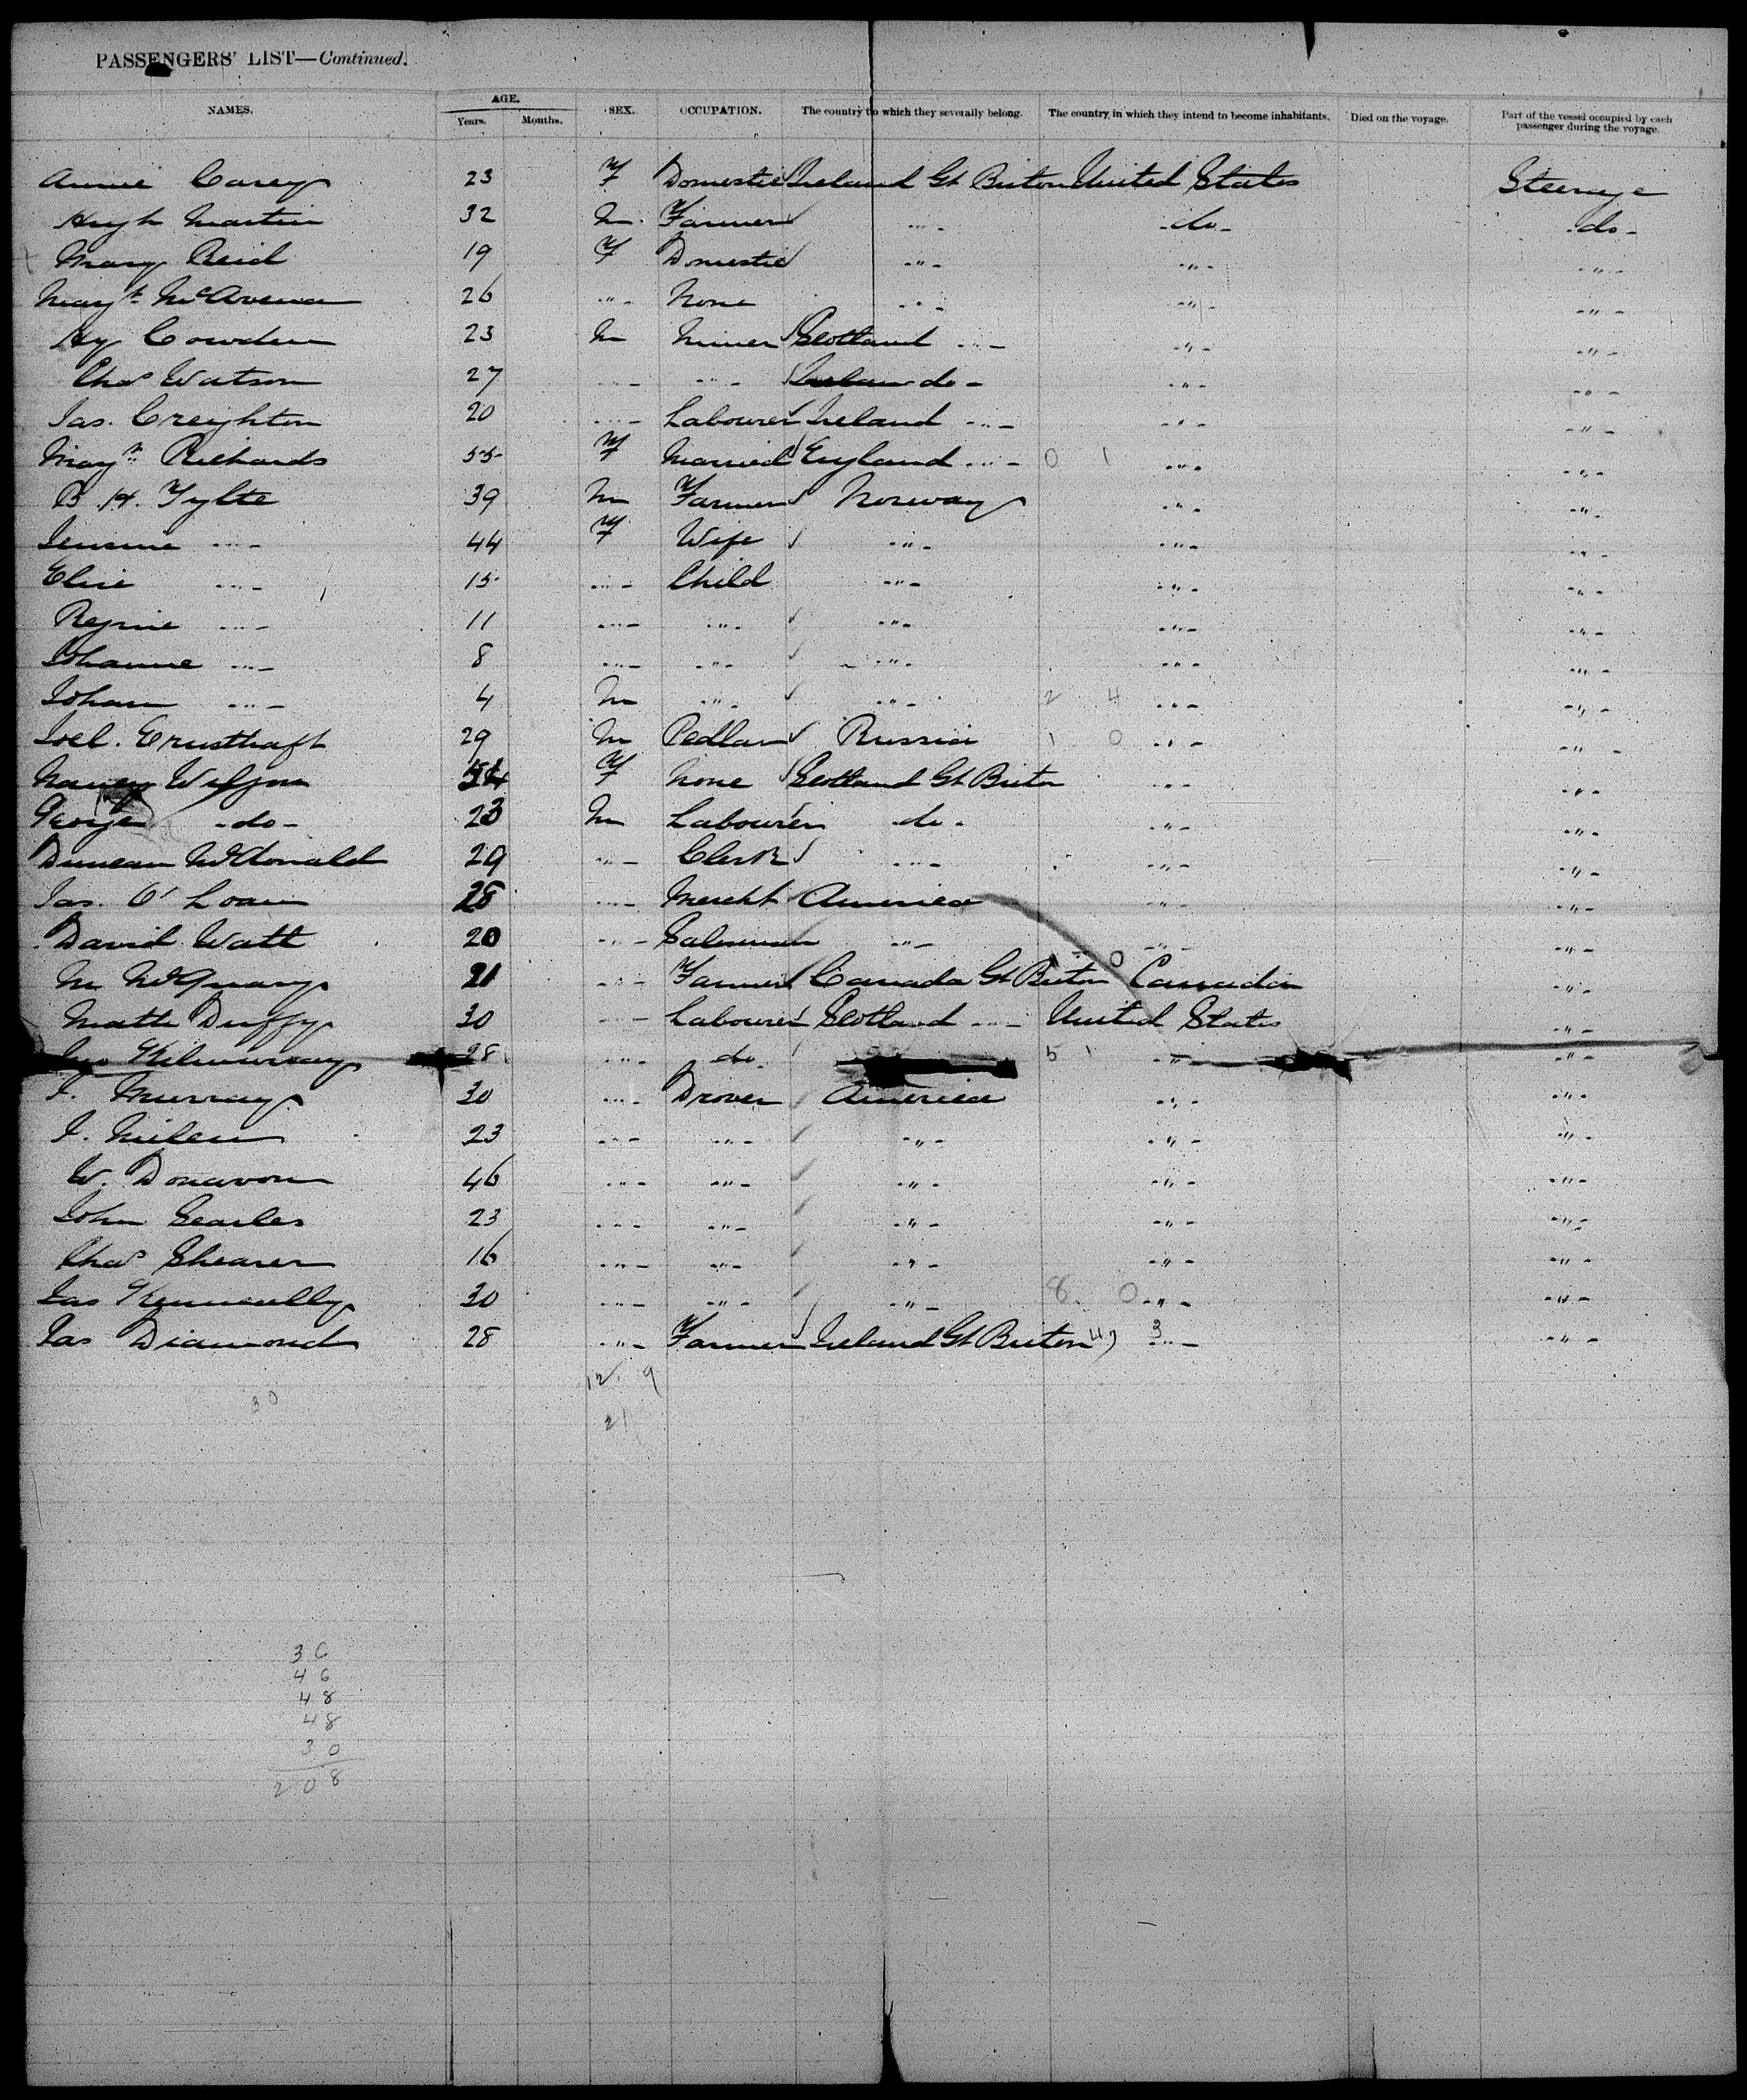 PASSENGERS' LIST—Continued.
NAMES. AGE. SEX. OCCUPATION. The country to which they severally belong. The country in which they intend to become inhabitants. Died on the voyage. Part of the vessel occupied by each passenger during the voyage.
Years. Months.
Annie Carey 23 F Domestic Ireland Gt Briton United States Steerage
Hugh Martin 32 M Farmer " do do
Mary Reid 19 F Domestic " " "
Margt McAvena 26 " None " " "
Hy Cowden 23 M Miner Scotland " " "
Chas Watson 27 " " do " "
Jas. Creighton 20 " Labourer Ireland " " "
Margt Richards 55 F Married England " 0 1 " "
B. H. Tylte 39 M Farmer Norway " "
Jensine " 44 F Wife " " "
Eline " 15 " Child " " "
Regine " 11 " " " " "
Johanne " 8 " " " " "
Johan " 4 M " " 2 4 " "
Joel. 29 M Pedlar Russia 1 0 " "
Nancy Wilson F None Scotland Gt Briton " "
George do 23 M Labourer do " "
Duncan McDonald 29 " Clerk " " "
Jas. O'Loan 28 " Mercht America " "
David Watt 20 " Salesman " " "
M McQuary 21 " Farmer Canada Gt Briton 0 Canada "
Matth Duffy 30 " Labourer Scotland " United States "
Jno Kilmurray 28 " do 5 1 " "
J. Murray 30 " Drover America " "
J. Milen 23 " " " " "
W. Donavon 46 " " " " "
John Searles 23 " " " " "
Chas Shearer 16 " " " " "
Jas Kenneally 30 " " " 8. 0 " "
Jas Diamond 28 " Farmer Ireland Gt Briton 4) 3 " "
12. 9
30
21
36
46
48
48
30
208